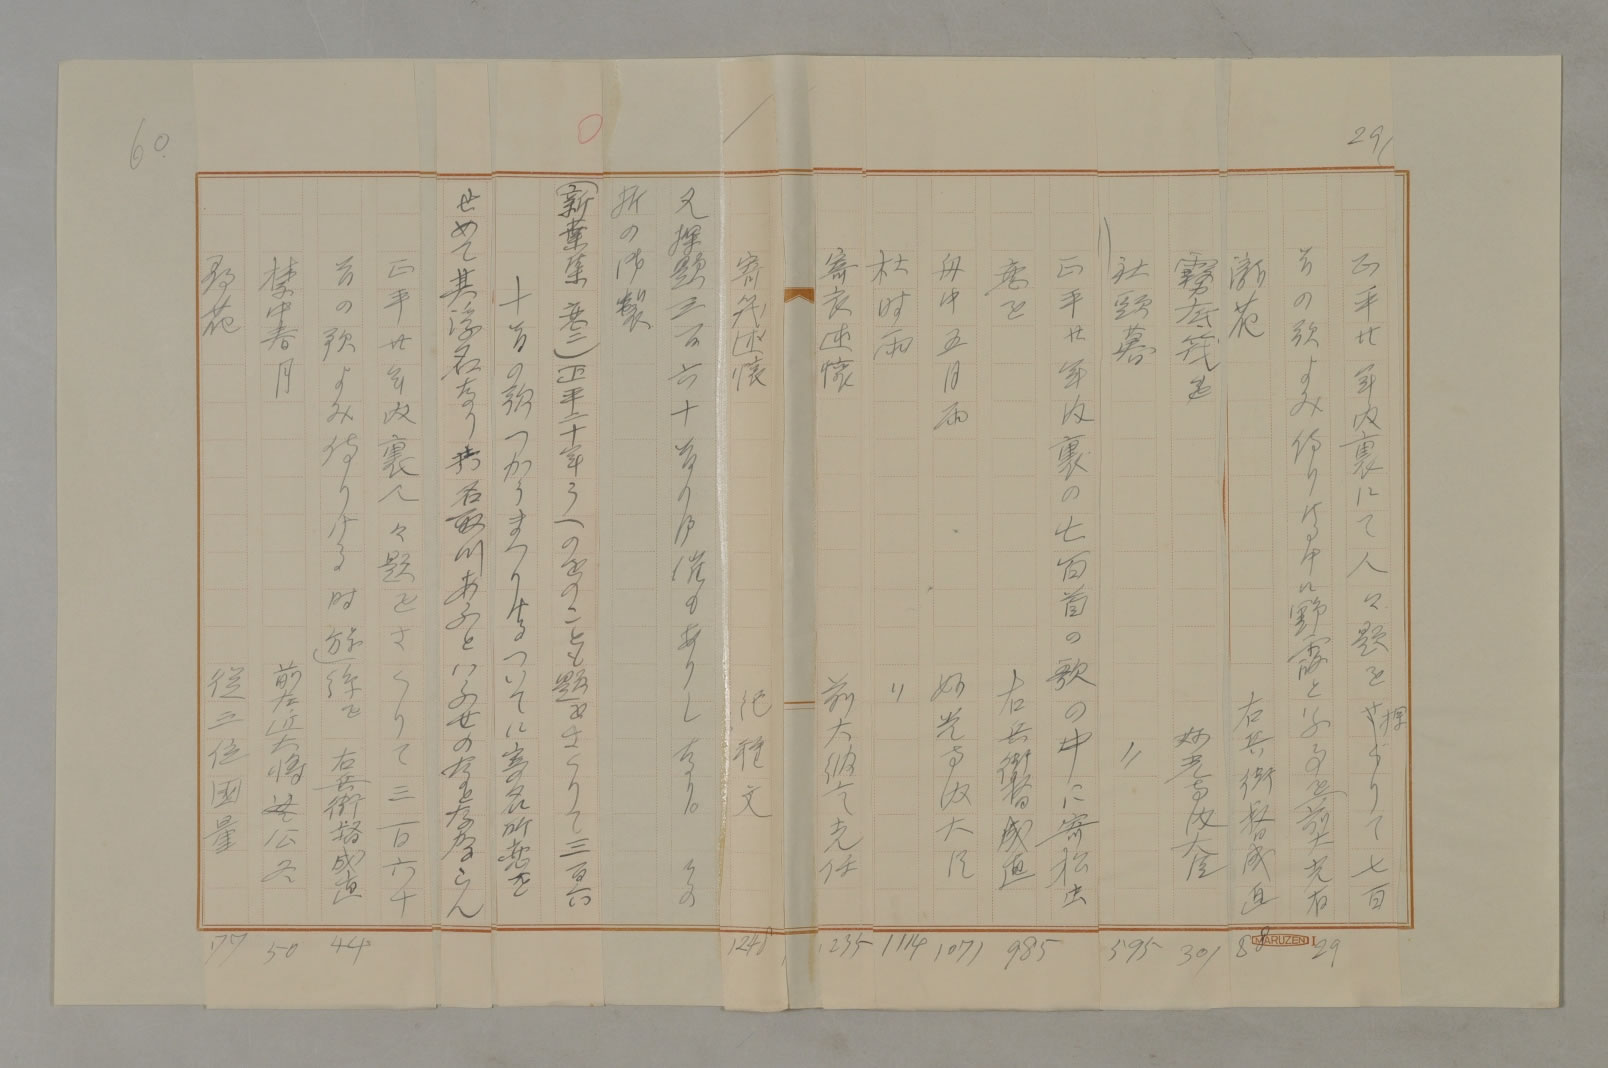 29
正平廿年内裏にて人々題を探さぐりて七百
首の歌よみ侍りける中に野霞といふ事を
29
瀧花　右兵衛督成直　88
霧底筏を　妙光寺内大臣　301
社頭暮　〃　595
正平廿年内裏の七百首の歌の中に寄松出
恋を　右兵衛督成直　985
舟中五月雨　妙光寺内大臣　1071
杜時雨　〃　1114
寄衣述懐　1235
寄筏述懐　1248
又探題三百六十首の御催もありしなり。その
折の御製
(新葉集 恋二)正平二十年うへのをのこども題をさぐりて三百六
十首の歌つかうまつりけるついてに寄名所恋を
せめて其浮名なり共名取川あふといふせのなとなかるらん
正平廿年内裏人々題をさくりて三百六十
首の歌よみ侍りける時遊糸を　右兵衛督成直　44
禁中春月　前左近大将公冬　50
翫花　従三位国量　77
60.
MARUZEN